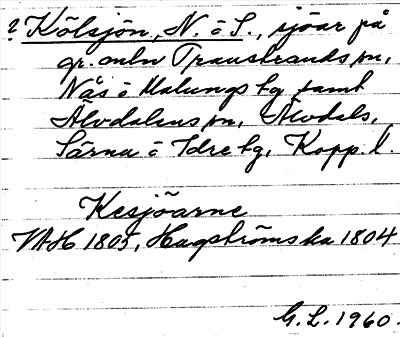 ? Kölsjön, N. o S., sjöar på
gr. mln Transtrands sn,
Nås o Malungs tg samt
Älvdalens sn, Älvdals,
Särna o Idre tg, Kopp. l.
Kesjöarne
VAH 1805, Hagströms ka 1804
G. L. 1960.